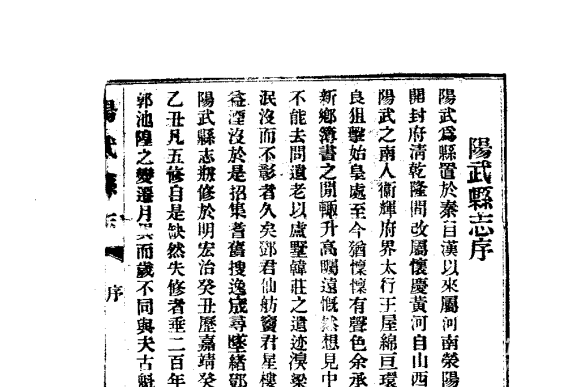 陽武縣志序
陽武爲縣置於秦自漢以來屬河南滎陽
開封府淸乾隆間改屬懷慶黃河自山西
陽武之南入衞輝府界太行王屋綿亘環
良狙擊始皇處至今猶懍懍有聲色余承
新鄉簿書之閒輒升高矚遠慨然想見中
不能去問遺老以盧墅韓莊之遺迹溴梁
泯沒而不彰者久矣鄧君仙舫竇君星樓
益湮沒於是招集耆舊搜逸成尋墜緒鄧
陽武縣志刱修於明宏治癸丑歷嘉靖癸
乙丑凡五修自是缺然失修者垂二百年
郭池隍之變遷月異而歲不同與夫古魁
陽武縣志
序